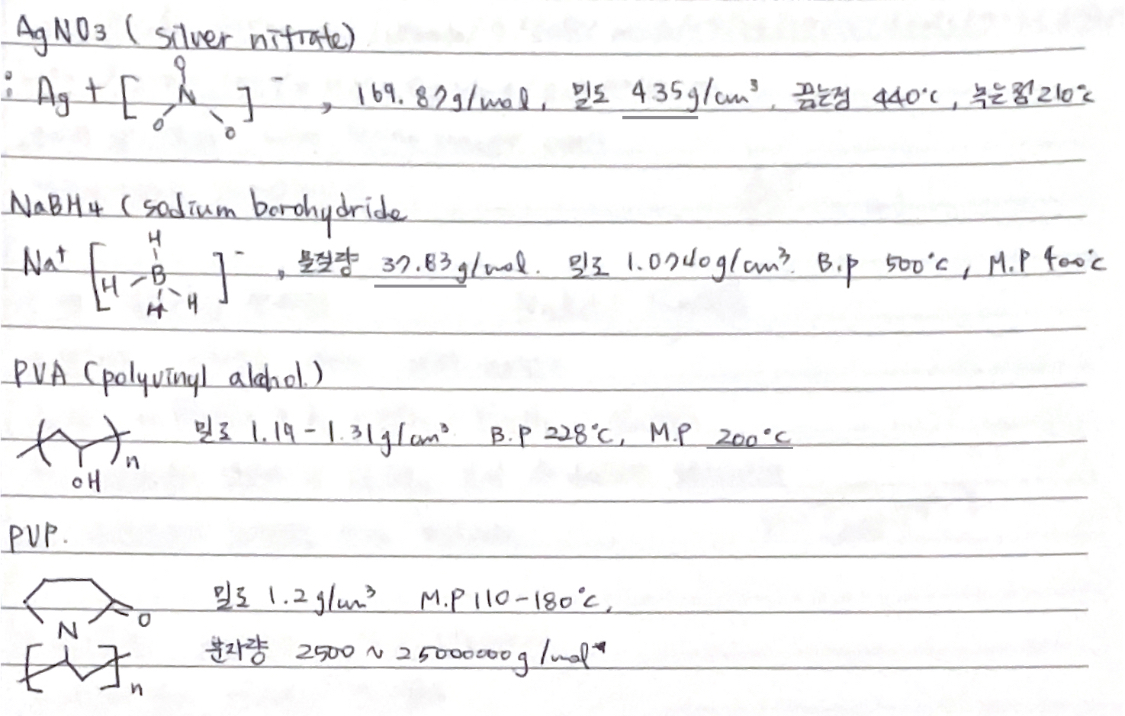 AgNO3 ( silver nitrate)
: Ag + [ O N O O ]⁻ , 169.87g/mol, 밀도 4.35g/cm³, 끓는점 440℃, 녹는점 210℃
NaBH4 (sodium borohydride
Na⁺ [ H B H H H ]⁻ , 몰질량 37.83g/mol. 밀도 1.0740g/cm³. B.p 500℃, M.P 400℃
PVA (polyvinyl alcohol.)
( )n OH 밀도 1.19-1.31g/cm³. B.P 228℃, M.P 200℃
PVP.
N O 밀도 1.2g/cm³ M.P 110-180℃,
[ ]n 분자량 2500 ~ 25000000g/mol